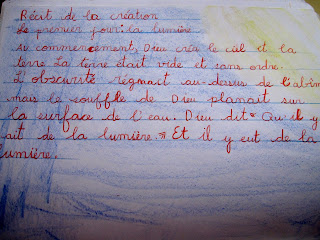 Récit de la création
Le premier jour : la lumière
Au commencement, Dieu créa le ciel et la
terre. La terre était vide et sans ordre.
L'obscurité régnait au-dessus de l'abîm
mais le souffle de Dieu planait sur
la surface de l'eau. Dieu dit " Qu'il y
ait de la lumière." Et il y eut de la
lumière.